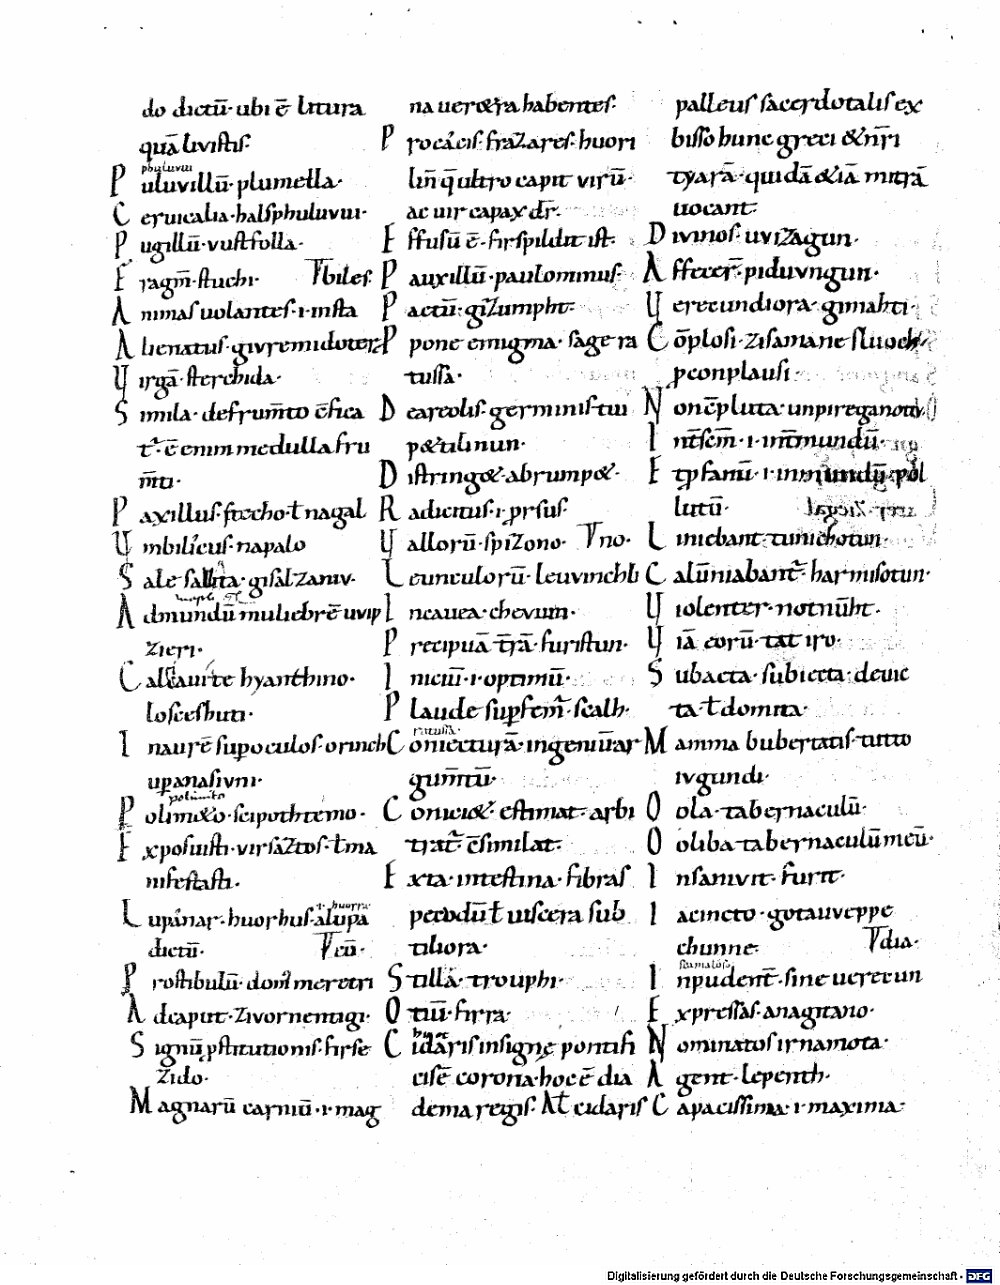 do dictū· ubi ē litura
quā livistis·
phuluuui
Puluvillū· plumella·
Ceruicalia· halsphuluvui·
Pugillū· vustfolla·
Fragm̄· stuchi· bıleſ
Animas uolantes· i· insta
Alienatus· givremidoter
Uirgā· sterchida·
Simila· de frum̄to ē sica
t̄· ē enim medulla fru
m̄ti·
Paxillus· stecho· ƚ nagal
Umbilicus· napalo
Sale salita· gisalzaniv·
Admundū muliebrē uvip
zieri·
hyanthino·
losceshuti·
Inaurē sup oculos· orinch
upanasivni·
polimito
Polim&o· seipothtemo·
Exposuisti· virsaztos· ƚ ma
nifestasti·
i· huorra
Lupanar· huorhus· a lupa
dictū· cū·
Prostibulū· dom' meretri
Adcaput· zivornentigi·
Signū pstitutionis· firse
zido·
Magnarū carniū· i· mag
na uer&ra habentes·
Procacis· frazares· huori
lin̄ q̄ ultro capit virū·
ac uir capax dr̄·
Effusū ē· firspildit ist·
Pauxillū· paulominus·
Pactū· gizumpht·
Ppone emigma· sage ra
tussa·
Deareolis· germinis tui
p&tilinun·
Distring&· abrump&·
Radicitus· i· prsus·
Uallorū· spizono· no·
Leunculorū· leuvinchli
Incauea· chevun·
Precipuā t̄rā· furistun·
Iniciū· i· optimū·
Plaude sup fem̄· scalh·
ratussa·
Coniecturā· ingeniū ar
gum̄tū·
Conici&· estimat· arbi
trat̄· c̄similat·
Exta· intestina· fibras
pecudū ƚ uiscera sub
tiliora·
Stillā· trouphi·
Otiū· firra·
huoc
Cidaris insigne pontifi
cis ē corona· hoc ē dia
dema regis· At cidaris
palleus sacerdotalis ex
bisso hunc greci & nr̄i
tyarā· quidā & iā mitrā
uocant·
Divinos· uvizagun·
Affecer̄· piduvngun·
Uerecundiora· gimahti·
Cōplosi· zisamane sluoch
pconplausi
Nonc̄pluta· unpireganotiv·
Int̄sem̄· i· int̄mundū·
Et pfanū· i· inmundū· pol
lutū·
Liniebant· tunichotun·
Calūniabant̄· harmisotun·
Uiolenter· notnūht·
Uiā eorū· tat iro·
Subacta· subiecta· devic
ta· ƚ domita·
Mamma bubertatis· tutto
ivgundi·
Oola· tabernaculū·
Ooliba· tabernaculū meū·
Insanivit· furit·
Iacincto· gotauveppe
chunne· dia·
scamalosi
Inpudent̄· sine uerecun
Expressas· anagitano·
Nominatos irnamota·
Agent· lepenth·
Capacissima· i· maxima·
Digitalisierung gefördert durch die Deutsche Forschungsgemeinschaft - DFG